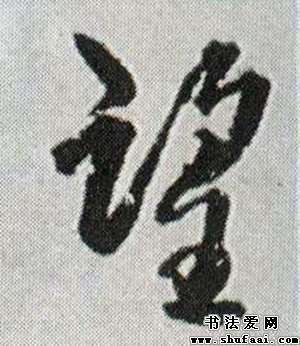 望
书法爱网
www.shufaai.com